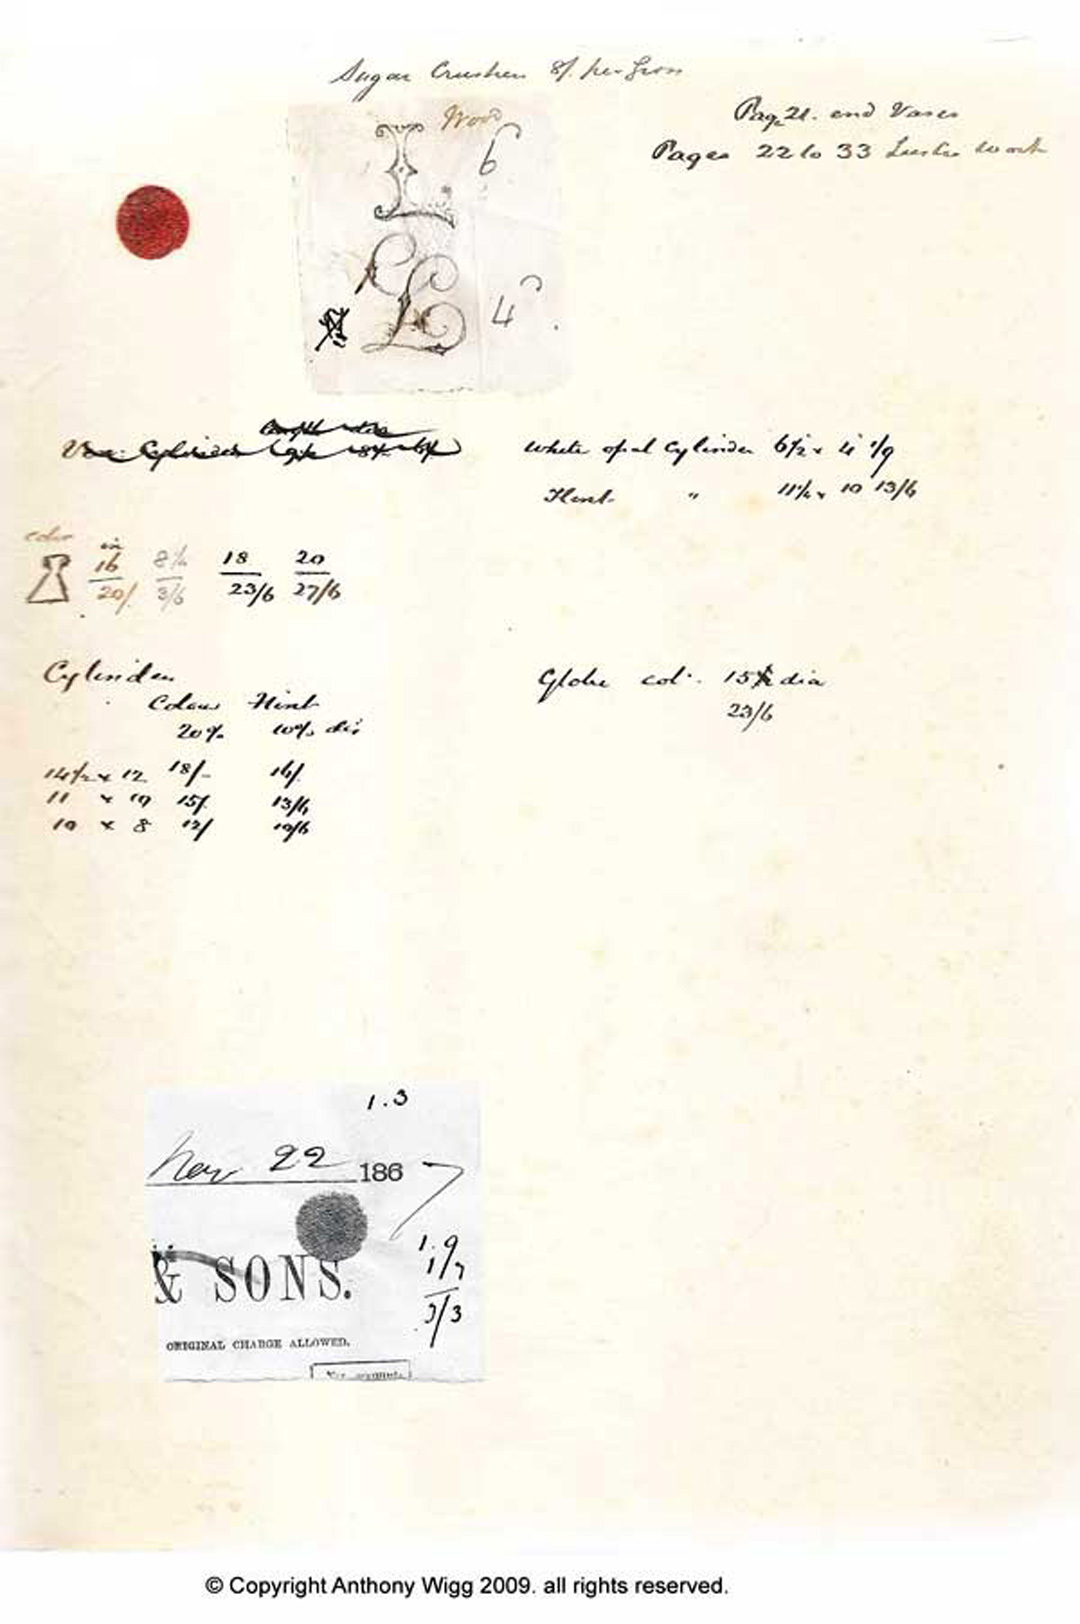 Sugar Crushers 8/. per Gross
Page 21. end Vases
Pages 22 to 33 Lustre work
Wood
L 6
L 4
White opal Cylinder 6½ x 4 1/9
Flint " 11½ x 10 13/6
color
in
16 8¼ 18 20
20/. 3/6 23/6 27/6
Cylinder
Colour Flint
20% 10% dis
14½ x 12 18/- 16/.
11 x 10 15/. 13/6
10 x 8 12/ 10/6
Globe col. 15½ dia
23/6
1.3
Nov 22 1867
& SONS.
1.9
1/
3/3
ORIGINAL CHARGE ALLOWED.
© Copyright Anthony Wigg 2009. all rights reserved.